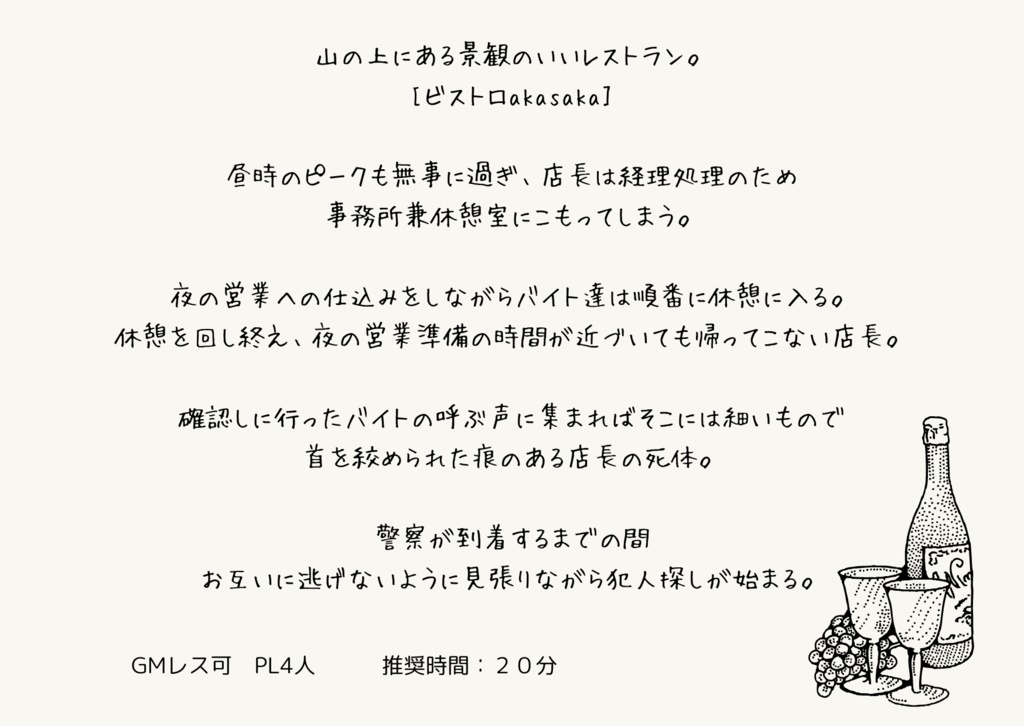 山の上にある景観のいいレストラン。
[ビストロakasaka]
昼時のピークも無事に過ぎ、店長は経理処理のため
事務所兼休憩室にこもってしまう。
夜の営業への仕込みをしながらバイト達は順番に休憩に入る。
休憩を回し終え、夜の営業準備の時間が近づいても帰ってこない店長。
確認しに行ったバイトの呼ぶ声に集まればそこには細いもので
首を絞められた痕のある店長の死体。
警察が到着するまでの間
お互いに逃げないように見張りながら犯人探しが始まる。
GMレス可　PL4人　　　推奨時間：２０分